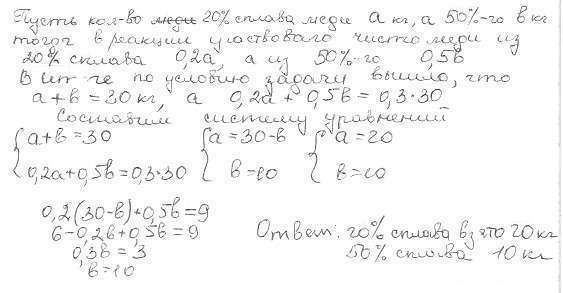 Пусть кол-во меди 20% сплава меди a кг, а 50%-го в кг
тогог в реакции участвовало чисто меди из
20% сплава 0,2a, а из 50%-го 0,5в
В ит-ге по условию задачи вышло, что
a+в = 30 кг, а 0,2a + 0,5в = 0,3·30
Составим систему уравнений
{a+в=30 {a=30-в {a=20
{0,2a+0,5в=0,3·30 {в=10 {в=10
0,2(30-в)+0,5в=9
6-0,2в+0,5в=9
0,3в=3
в=10
Ответ: 20% сплава взято 20 кг
50% сплава 10 кг